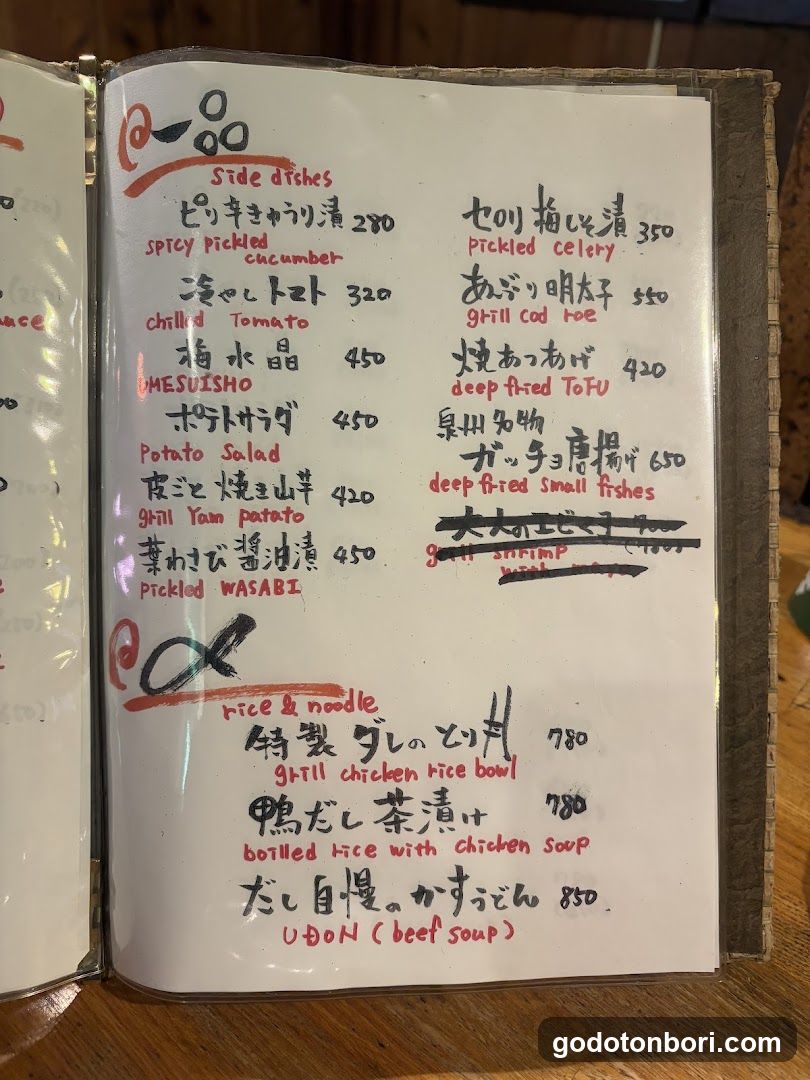 一品
side dishes
ピリ辛きゅうり漬 280
spicy pickled
cucumber
冷やしトマト 320
chilled Tomato
梅水晶 450
UMESUISHO
ポテトサラダ 450
Potato Salad
皮ごと焼き山芋 420
grill Yam patato
葉わさび醤油漬 450
pickled WASABI
セロリ梅しそ漬 350
pickled celery
あぶり明太子 550
grill cod roe
焼あつあげ 420
deep fried TOFU
泉州名物
ガッチョ唐揚げ 650
deep fried small fishes
grill shrimp
〆
rice & noodle
特製ダレのとり丼 780
grill chicken rice bowl
鴨だし茶漬け 780
boilled rice with chicken soup
だし自慢のかすうどん 850
UDON (beef soup)
godotonbori.com